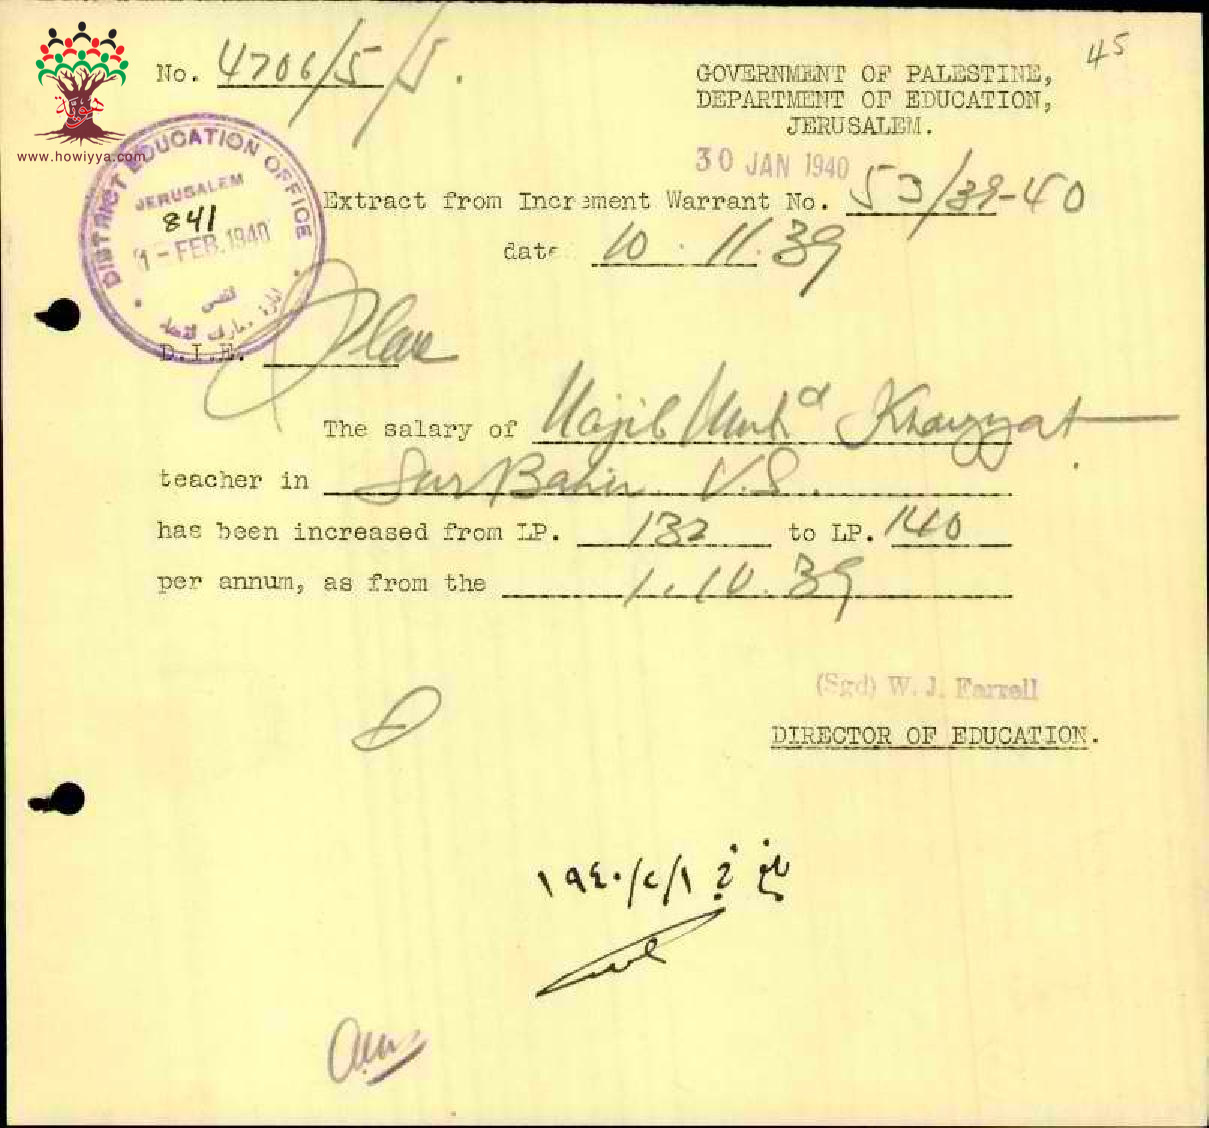 45
No. 4706/5/5.
GOVERNMENT OF PALESTINE,
DEPARTMENT OF EDUCATION,
JERUSALEM.
هوية
www.howiyya.com
30 JAN 1940
DISTRICT EDUCATION OFFICE
JERUSALEM
841
1 - FEB. 1940
Extract from Increment Warrant No. 53/39-40
date 10.11.39
D.I.E.
The salary of Najib Muhd Khayyat
teacher in Sur Bahir V.S.
has been increased from LP. 132 to LP. 140
per annum, as from the 1.10.39
(Sgd) W. J. Farrell
DIRECTOR OF EDUCATION.
١٩٤٠/٢/١